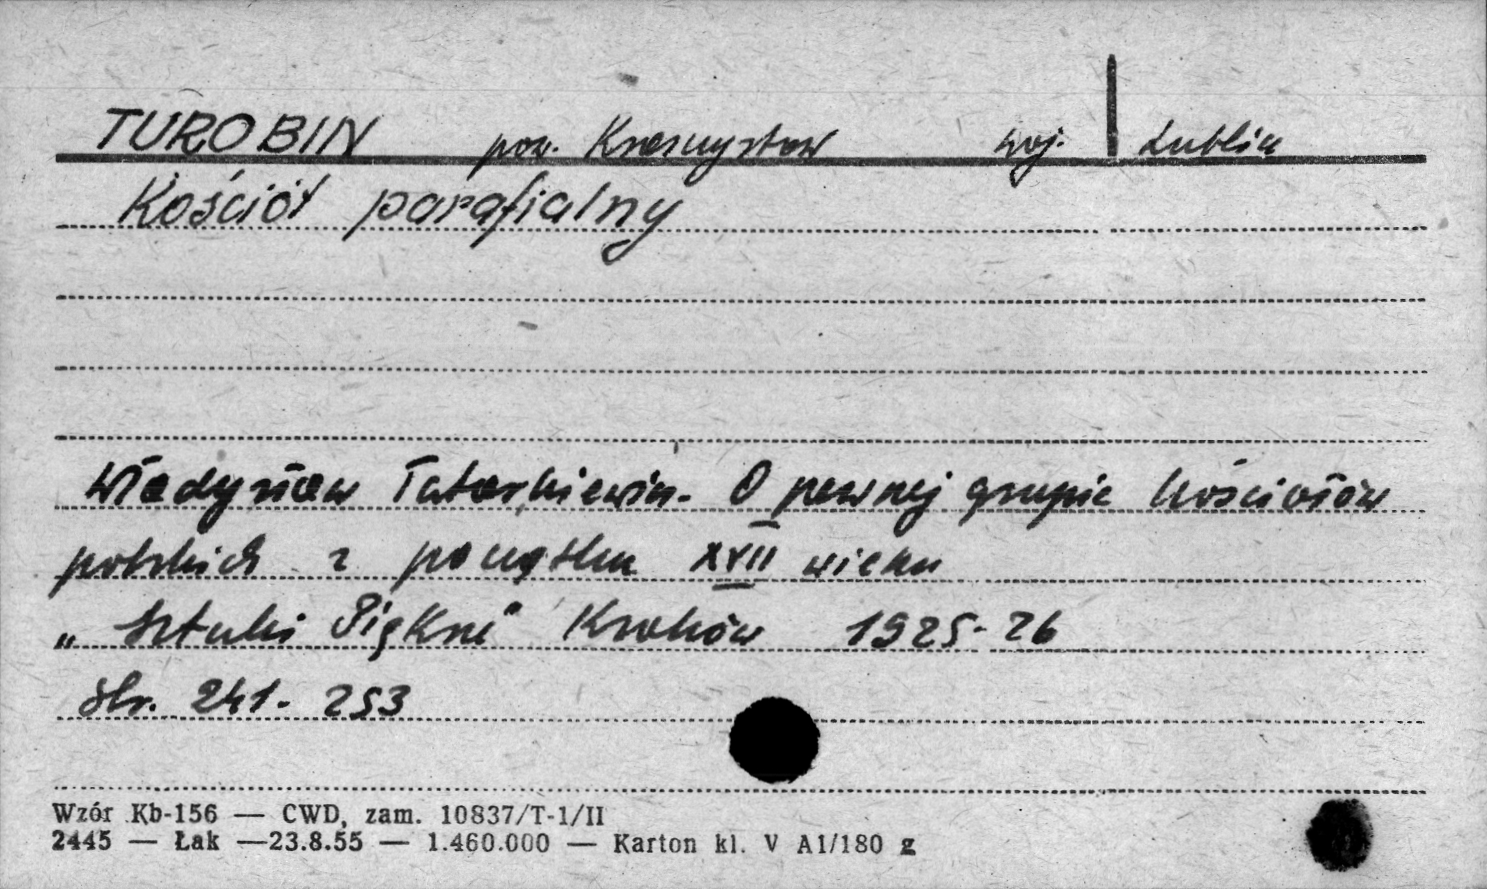 TUROBIN pow. Krasnystaw woj. Lublin
Kościół parafialny
Władysław Tatarkiewicz. O pewnej grupie kościołów
polskich z początku XVII wieku
„Sztuki Piękne" Kraków 1925-26
Str. 241-253
Wzór Kb-156 — CWD, zam. 10837/T-1/II
2445 — Łak —23.8.55 — 1.460.000 — Karton kl. V A1/180 g